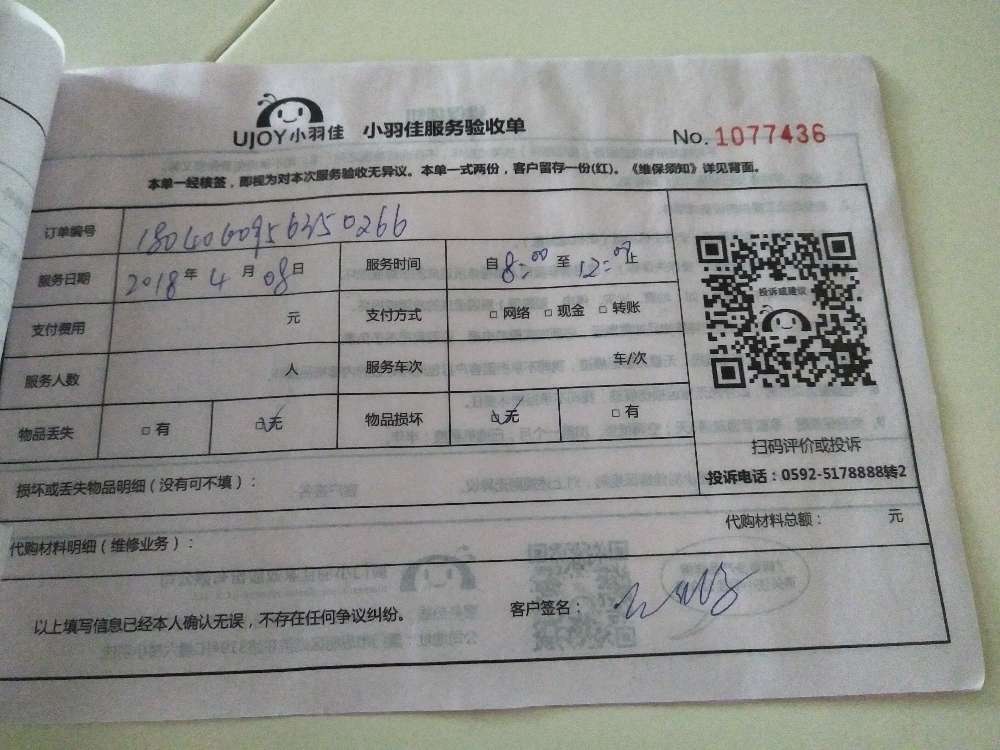 UJOY小羽佳 小羽佳服务验收单
No. 1077436
本单一经核签，即视为对本次服务验收无异议。本单一式两份，客户留存一份(红)。《维保须知》详见背面。
订单编号
服务日期 2018年4月08日 服务时间 自8:00至12:00止
支付费用 元 支付方式 □网络 □现金 □转账
服务人数 人 服务车次 车/次
物品丢失 □有 □无 物品损坏 □无 □有
投诉或建议
扫码评价或投诉
投诉电话：0592-5178888转2
损坏或丢失物品明细（没有可不填）：
代购材料明细（维修业务）： 代购材料总额： 元
以上填写信息已经本人确认无误，不存在任何争议纠纷。 客户签名：